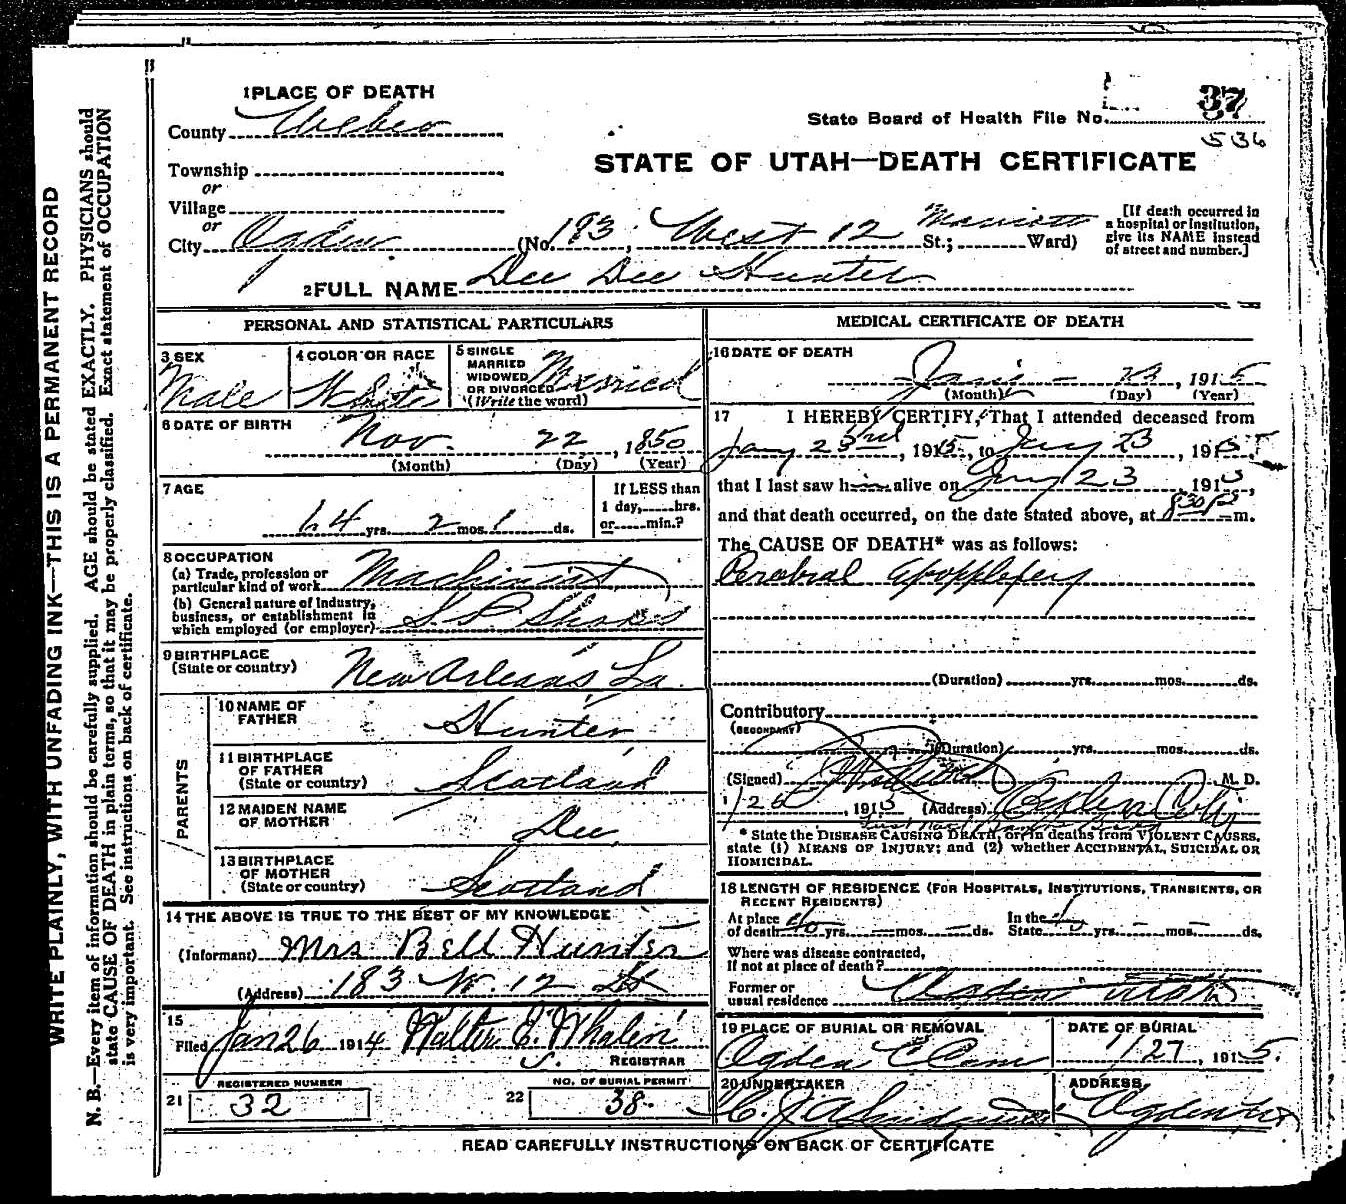 1 PLACE OF DEATH
County Weber
State Board of Health File No. 37
536
STATE OF UTAH—DEATH CERTIFICATE
Township
or
Village
or
City Ogden (No. 193; West 12 Marriott St.; Ward)
[If death occurred in
a hospital or institution,
give its NAME instead
of street and number.]
2 FULL NAME Dee Dee Hunter
PERSONAL AND STATISTICAL PARTICULARS
3 SEX
Male
4 COLOR OR RACE
White
5 SINGLE
MARRIED
WIDOWED
OR DIVORCED
(Write the word)
Married
6 DATE OF BIRTH
Nov. 22, 1850
(Month) (Day) (Year)
7 AGE
64 yrs. 2 mos. 1 ds.
If LESS than
1 day, hrs.
or min.?
8 OCCUPATION
(a) Trade, profession or
particular kind of work Machinist
(b) General nature of Industry,
business, or establishment in
which employed (or employer) S.P. Shops
9 BIRTHPLACE
(State or country) New Orleans La.
PARENTS
10 NAME OF
FATHER Hunter
11 BIRTHPLACE
OF FATHER
(State or country) Scotland
12 MAIDEN NAME
OF MOTHER Dee
13 BIRTHPLACE
OF MOTHER
(State or country) Scotland
14 THE ABOVE IS TRUE TO THE BEST OF MY KNOWLEDGE
(Informant) Mrs Bell Hunter
(Address) 183 W. 12 St
15
Filed Jan 26 1914 Walter E. Whalen
REGISTRAR
REGISTERED NUMBER
21 32
NO. OF BURIAL PERMIT
22 38
MEDICAL CERTIFICATE OF DEATH
16 DATE OF DEATH
23, 1915
(Month) (Day) (Year)
17 I HEREBY CERTIFY, That I attended deceased from
Jany 23rd, 1915, to Jany 23, 1915
that I last saw him alive on Jany 23, 1915,
and that death occurred, on the date stated above, at 830 P m.
The CAUSE OF DEATH* was as follows:
Cerebral
(Duration) yrs. mos. ds.
Contributory
(SECONDARY)
(Duration) yrs. mos. ds.
(Signed) M. D.
1/26, 1915 (Address) Ogden City
* State the DISEASE CAUSING DEATH, or in deaths from VIOLENT CAUSES,
state (1) MEANS OF INJURY; and (2) whether ACCIDENTAL, SUICIDAL OR
HOMICIDAL.
18 LENGTH OF RESIDENCE (FOR HOSPITALS, INSTITUTIONS, TRANSIENTS, OR
RECENT RESIDENTS)
At place
of death yrs. mos. ds.
In the
State yrs. mos. ds.
Where was disease contracted,
If not at place of death?
Former or
usual residence Utah
19 PLACE OF BURIAL OR REMOVAL
Ogden C Cem
DATE OF BURIAL
1/27, 1915.
20 UNDERTAKER
ADDRESS
Ogden
READ CAREFULLY INSTRUCTIONS ON BACK OF CERTIFICATE
WRITE PLAINLY, WITH UNFADING INK—THIS IS A PERMANENT RECORD
N. B.—Every item of information should be carefully supplied. AGE should be stated EXACTLY. PHYSICIANS should
state CAUSE OF DEATH in plain terms, so that it may be properly classified. Exact statement of OCCUPATION
is very important. See instructions on back of certificate.